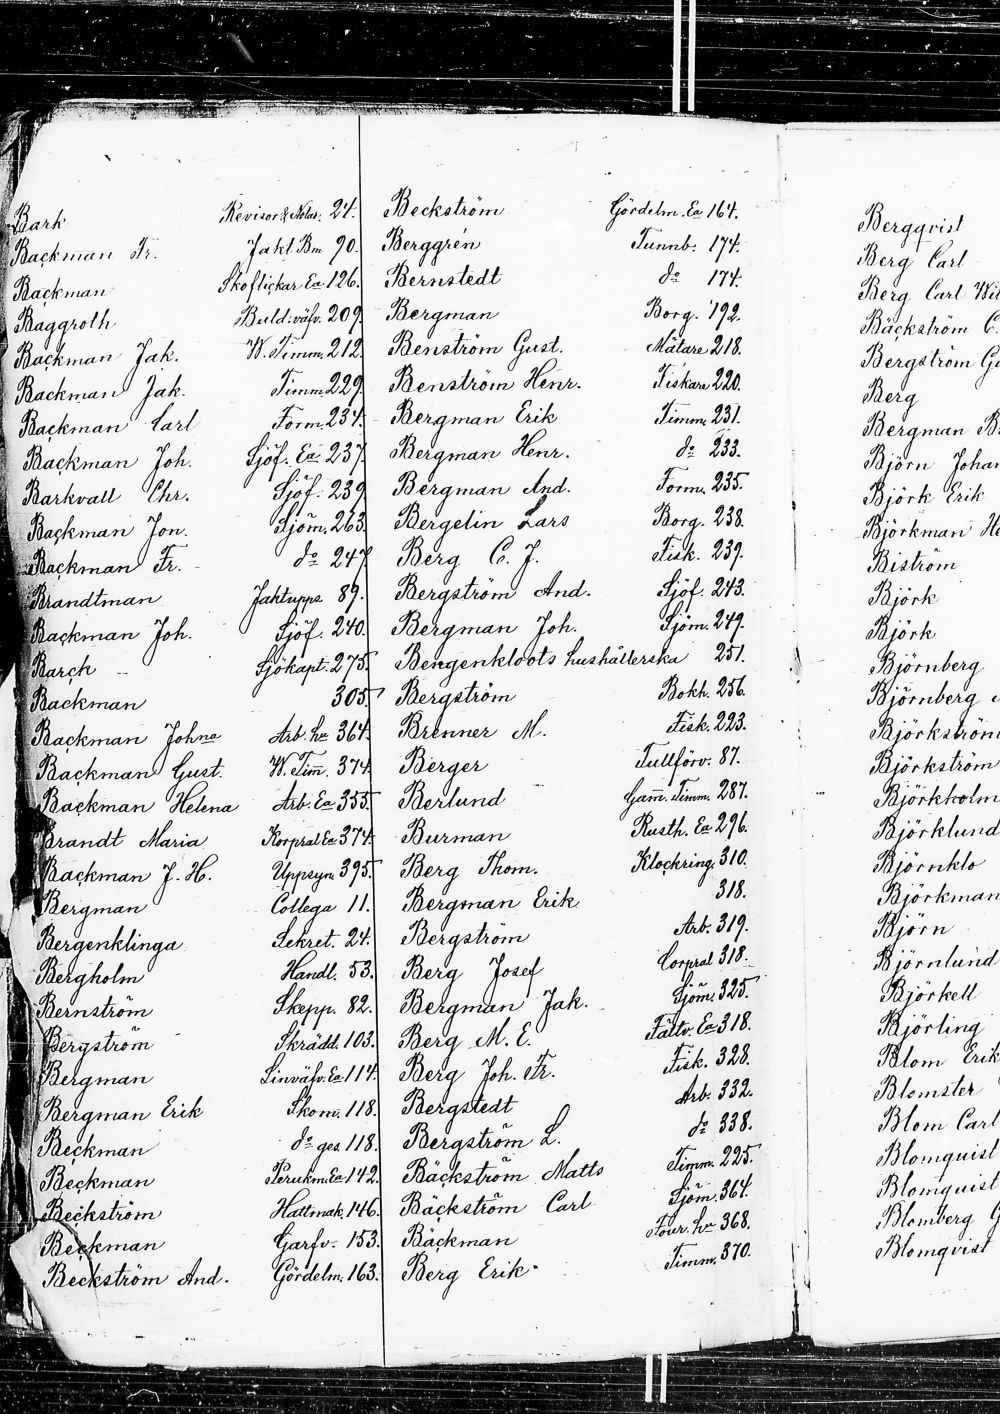 Bark Revisor & Notar. 24.
Backman Fr. Jakt Bm 90.
Backman Skoflickar Ea 126.
Baggroth Buld:väfv. 209.
Backman Jak. W. Timm. 212.
Backman Jak. Timm. 229.
Backman Carl Form. 234.
Backman Joh. Sjöf. Ea 237.
Barkvall Chr. Sjöf. 239.
Backman Jon. Sjöm. 263.
Backman Fr. do 247.
Brandtman Jaktupps 89.
Backman Joh. Sjöf. 240.
Barck – Sjökapt. 275.
Backman 305.
Backman Johna Arb. hu 364.
Backman Gust. W. Tim. 374.
Backman Helena Arb. Ea 355.
Brandt Maria Korpral Ea 374.
Backman J. H. Uppsyn. 395.
Bergman Collega 11.
Bergenklinga Sekret. 24.
Bergholm Handl. 53.
Bernström Skepp. 82.
Bergström Skrädd. 103.
Bergman Linväfv. Ea 114.
Bergman Erik Skom. 118.
Beckman do ges. 118.
Beckman Perukm. Ea 142.
Beckström Hattmak. 146.
Beckman Garfv. 153.
Beckström And. Gördelm. 163.
Beckström Gördelm. Ea 164.
Berggrén Tunnb. 174.
Bernstedt do 174.
Bergman Borg. 192.
Benström Gust. Mätare 218.
Benström Henr. Fiskare 220.
Bergman Erik Timm. 231.
Bergman Henr. do 233.
Bergman And. Form. 235.
Bergelin Lars Borg. 238.
Berg C. J. Fisk. 239.
Bergström And. Sjöf. 243.
Bergman Joh. Sjöm. 249.
Bengenkloots hushållerska 251.
Bergström Bokh. 256.
Brenner M. Fisk. 223.
Berger Tullförv. 87.
Berlund Gam. Timm. 287.
Burman Rusth. Ea 296.
Berg Thom. Klockring. 310.
Bergman Erik 318.
Bergström Arb. 319.
Berg Josef Corpral 318.
Bergman Jak. Sjöm. 325.
Berg M. E. Fältv. Ea 318.
Berg Joh. Fr. Fisk. 328.
Bergstedt Arb. 332.
Bergström L. do 338.
Bäckström Matts Timm. 225.
Bäckström Carl Sjöm. 364.
Bäckman Four. hu 368.
Berg Erik Timm. 370.
Bergqvist
Berg Carl
Berg Carl Wil
Bäckström C.
Bergström Gu
Berg
Bergman B.
Björn Johan
Björk Erik
Björkman He
Biström
Björk
Björk
Björnberg
Björnberg
Björkström
Björkström
Björkholm
Björklund
Björnklo
Björkman
Björn
Björnlund
Björkell
Björling
Blom Erik
Blomster
Blom Carl
Blomquist
Blomquist
Blomberg G
Blomqvist